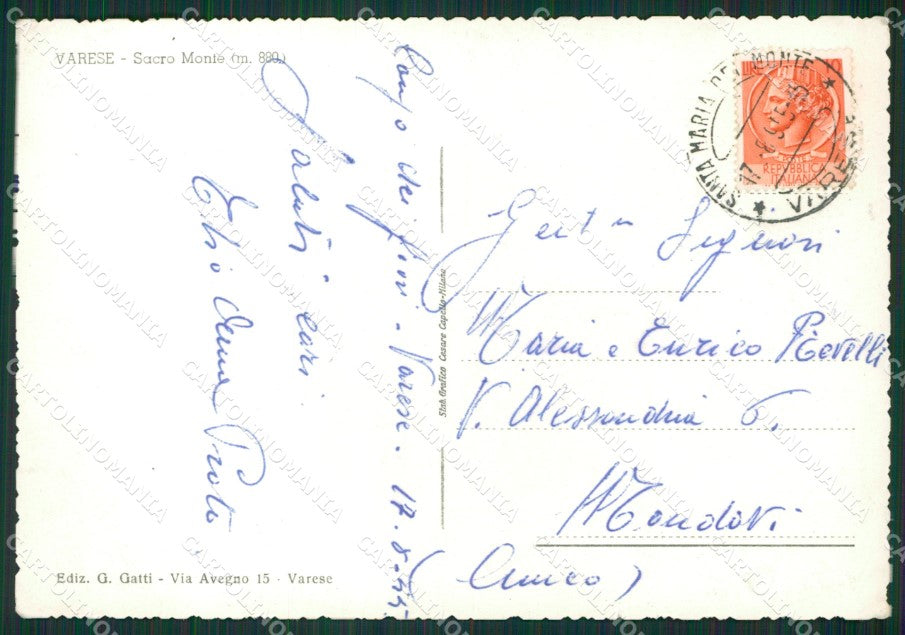 VARESE - Sacro Monte (m. 880.)
Campo dei fiori - Varese. 17.8.55
Saluti cari
Pioli
Ediz. G. Gatti - Via Avegno 15 - Varese
Stab. Grafico Cesare Capello-Milano
SANTA MARIA DEL MONTE
VARESE
LIRE 10
REPUBBLICA
ITALIANA
Gent. Signori
Maria e Enrico Revelli
V. Alessandria 6.
Mondovì
(Cuneo)
CARTOLINOMANIA